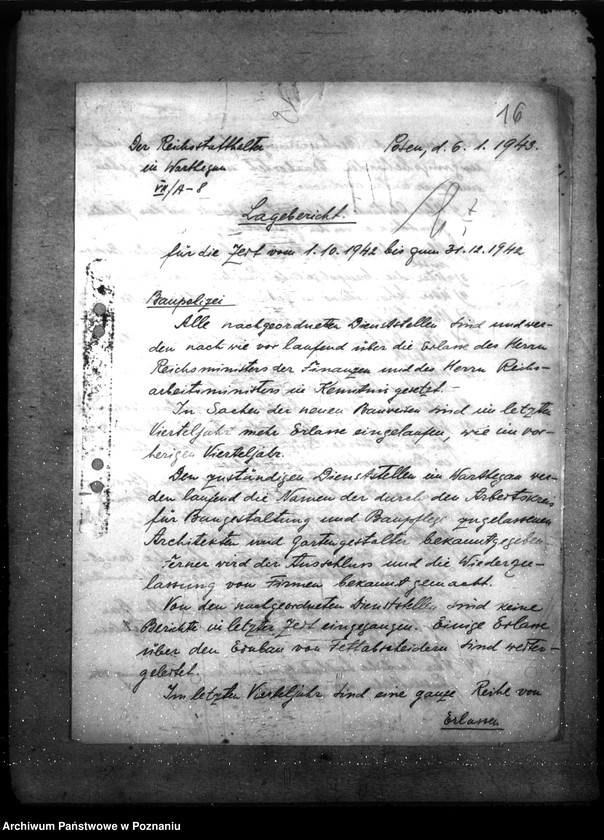 16
Der Reichsstatthalter
im Warthegau
VII/A-8
Posen, d. 6. 1. 1943.
Lagebericht.
für die Zeit vom 1.10.1942 bis zum 31.12.1942
Baupolizei
Alle nachgeordneten Dienststellen sind und wer-
den nach wie vor laufend über die Erlasse des Herrn
Reichsministers der Finanzen und des Herrn Reichs-
arbeitsministers in Kenntnis gesetzt.-
In Sachen der neuen Bauweisen sind im letzten
Vierteljahr mehr Erlasse eingelaufen, wie im vor-
herigen Vierteljahr.
Den zuständigen Dienststellen im Warthegau wer-
den laufend die Namen der durch den Arbeitskreis
für Baugestaltung und Baupflege zugelassenen
Architekten und Gartengestalter bekanntgegeben.
Ferner wird der Ausschluss und die Wiederzu-
lassung von Firmen bekannt gemacht.
Von den nachgeordneten Dienststellen sind keine
Berichte in letzter Zeit eingegangen. Einige Erlasse
über den Einbau von Fettabscheidern sind weiter-
geleitet.
Im letzten Vierteljahr sind eine ganze Reihe von
Erlassen
Archiwum Państwowe w Poznaniu